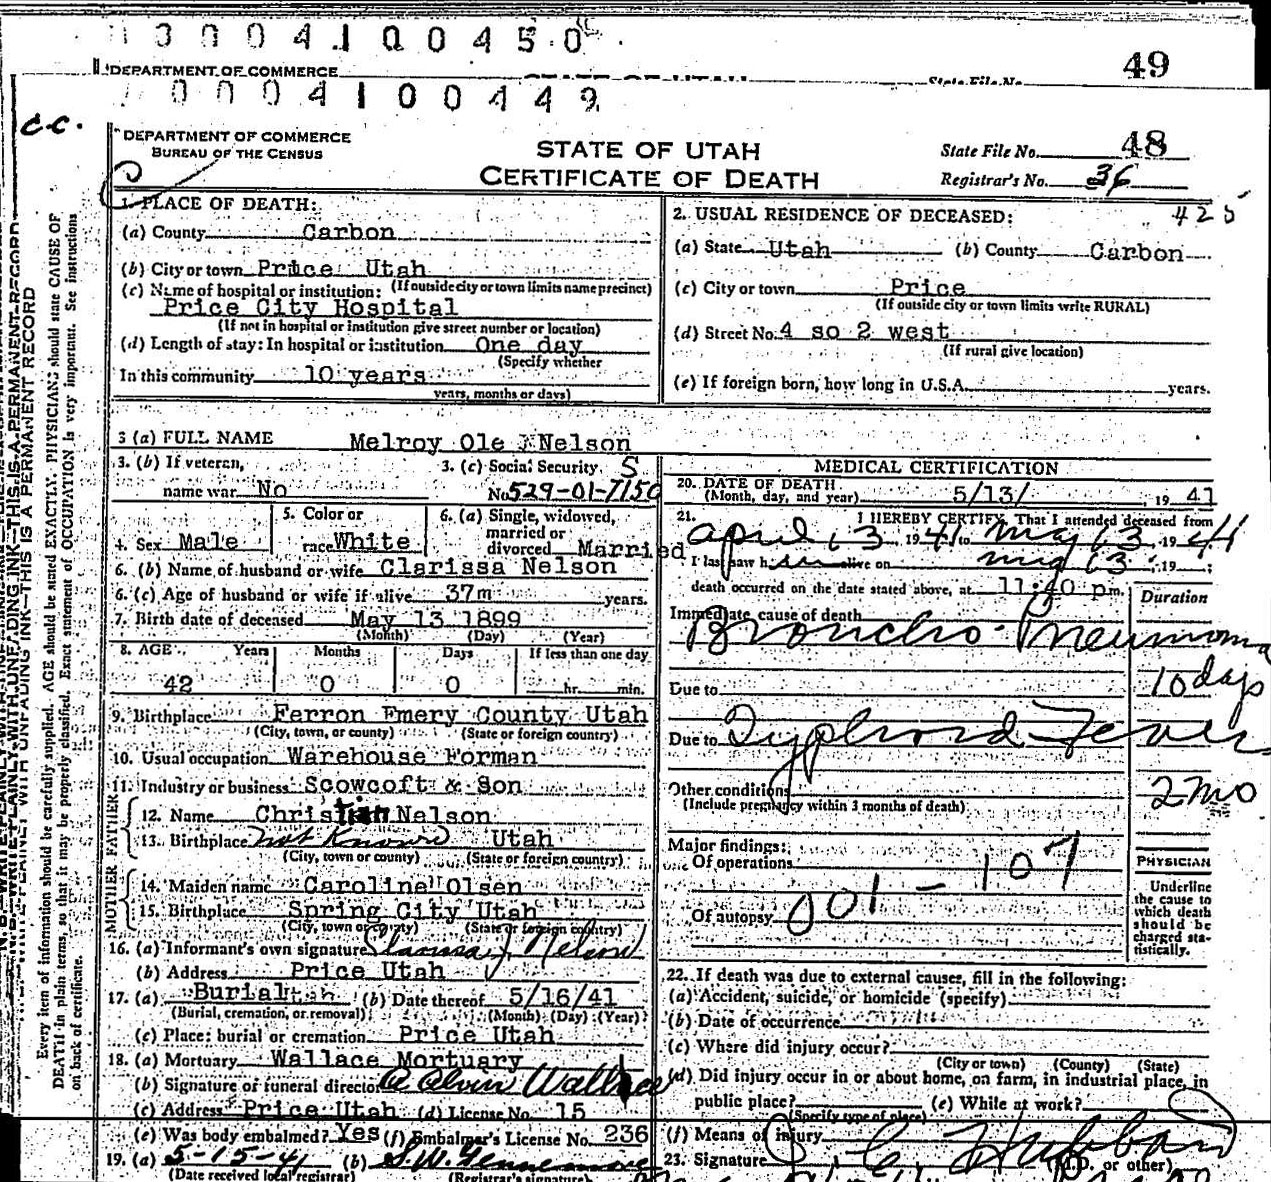 0004100450
49
DEPARTMENT OF COMMERCE STATE OF UTAH State File No.
0004100449
c.c.
DEPARTMENT OF COMMERCE
BUREAU OF THE CENSUS
STATE OF UTAH
CERTIFICATE OF DEATH
State File No. 48
Registrar's No. 36
425
1. PLACE OF DEATH:
(a) County Carbon
(b) City or town Price Utah
(c) Name of hospital or institution: (If outside city or town limits name precinct)
Price City Hospital
(If not in hospital or institution give street number or location)
(d) Length of stay: In hospital or institution One day
(Specify whether
In this community 10 years
years, months or days)
2. USUAL RESIDENCE OF DECEASED:
(a) State Utah (b) County Carbon
(c) City or town Price
(If outside city or town limits write RURAL)
(d) Street No. 4 so 2 west
(If rural give location)
(e) If foreign born, how long in U.S.A. years.
3 (a) FULL NAME Melroy Ole Nelson
3. (b) If veteran, name war No
3. (c) Social Security S
No. 529-01-7150
4. Sex Male
5. Color or race White
6. (a) Single, widowed, married or divorced Married
6. (b) Name of husband or wife Clarissa Nelson
6. (c) Age of husband or wife if alive 37m years.
7. Birth date of deceased May 13 1899
(Month) (Day) (Year)
8. AGE Years Months Days If less than one day
42 0 0 hr. min.
9. Birthplace Ferron Emery County Utah
(City, town, or county) (State or foreign country)
10. Usual occupation Warehouse Forman
11. Industry or business Scowcoft & Son
FATHER
12. Name Christian Nelson
13. Birthplace Not Known Utah
(City, town or county) (State or foreign country)
MOTHER
14. Maiden name Caroline Olsen
15. Birthplace Spring City Utah
(City, town or county) (State or foreign country)
16. (a) Informant's own signature Clarissa J Nelson
(b) Address Price Utah
17. (a) Burial (b) Date thereof 5/16/41
(Burial, cremation, or removal) (Month) (Day) (Year)
(c) Place: burial or cremation Price Utah
18. (a) Mortuary Wallace Mortuary
(b) Signature of funeral director A Alvin Wallace
(c) Address Price Utah (d) License No. 15
(e) Was body embalmed? Yes (f) Embalmer's License No. 236
19. (a) 5-15-41 (b) S.W.
(Date received local registrar) (Registrar's signature)
MEDICAL CERTIFICATION
20. DATE OF DEATH
(Month, day, and year) 5/13/ , 19 41
21. I HEREBY CERTIFY, That I attended deceased from
April 13, 1941 to May 13, 1941
I last saw him alive on May 13, 19 ;
death occurred on the date stated above, at 11:40 p m.
Duration
Immediate cause of death
Broncho-Pneumonia
10 days
Due to
Due to Typhoid Fever
2 mo
Other conditions
(Include pregnancy within 3 months of death)
Major findings:
Of operations
Of autopsy
001-107
PHYSICIAN
Underline the cause to which death should be charged statistically.
22. If death was due to external causes, fill in the following:
(a) Accident, suicide, or homicide (specify)
(b) Date of occurrence
(c) Where did injury occur?
(City or town) (County) (State)
(d) Did injury occur in or about home, on farm, in industrial place, in
public place? (e) While at work?
(Specify type of place)
(f) Means of injury
23. Signature J. C. Hubbard
(M.D. or other)
N. B.—WRITE PLAINLY WITH UNFADING INK—THIS IS A PERMANENT RECORD
Every item of information should be carefully supplied. AGE should be stated EXACTLY. PHYSICIANS should state CAUSE OF
DEATH in plain terms, so that it may be properly classified. Exact statement of OCCUPATION is very important. See instructions
on back of certificate.